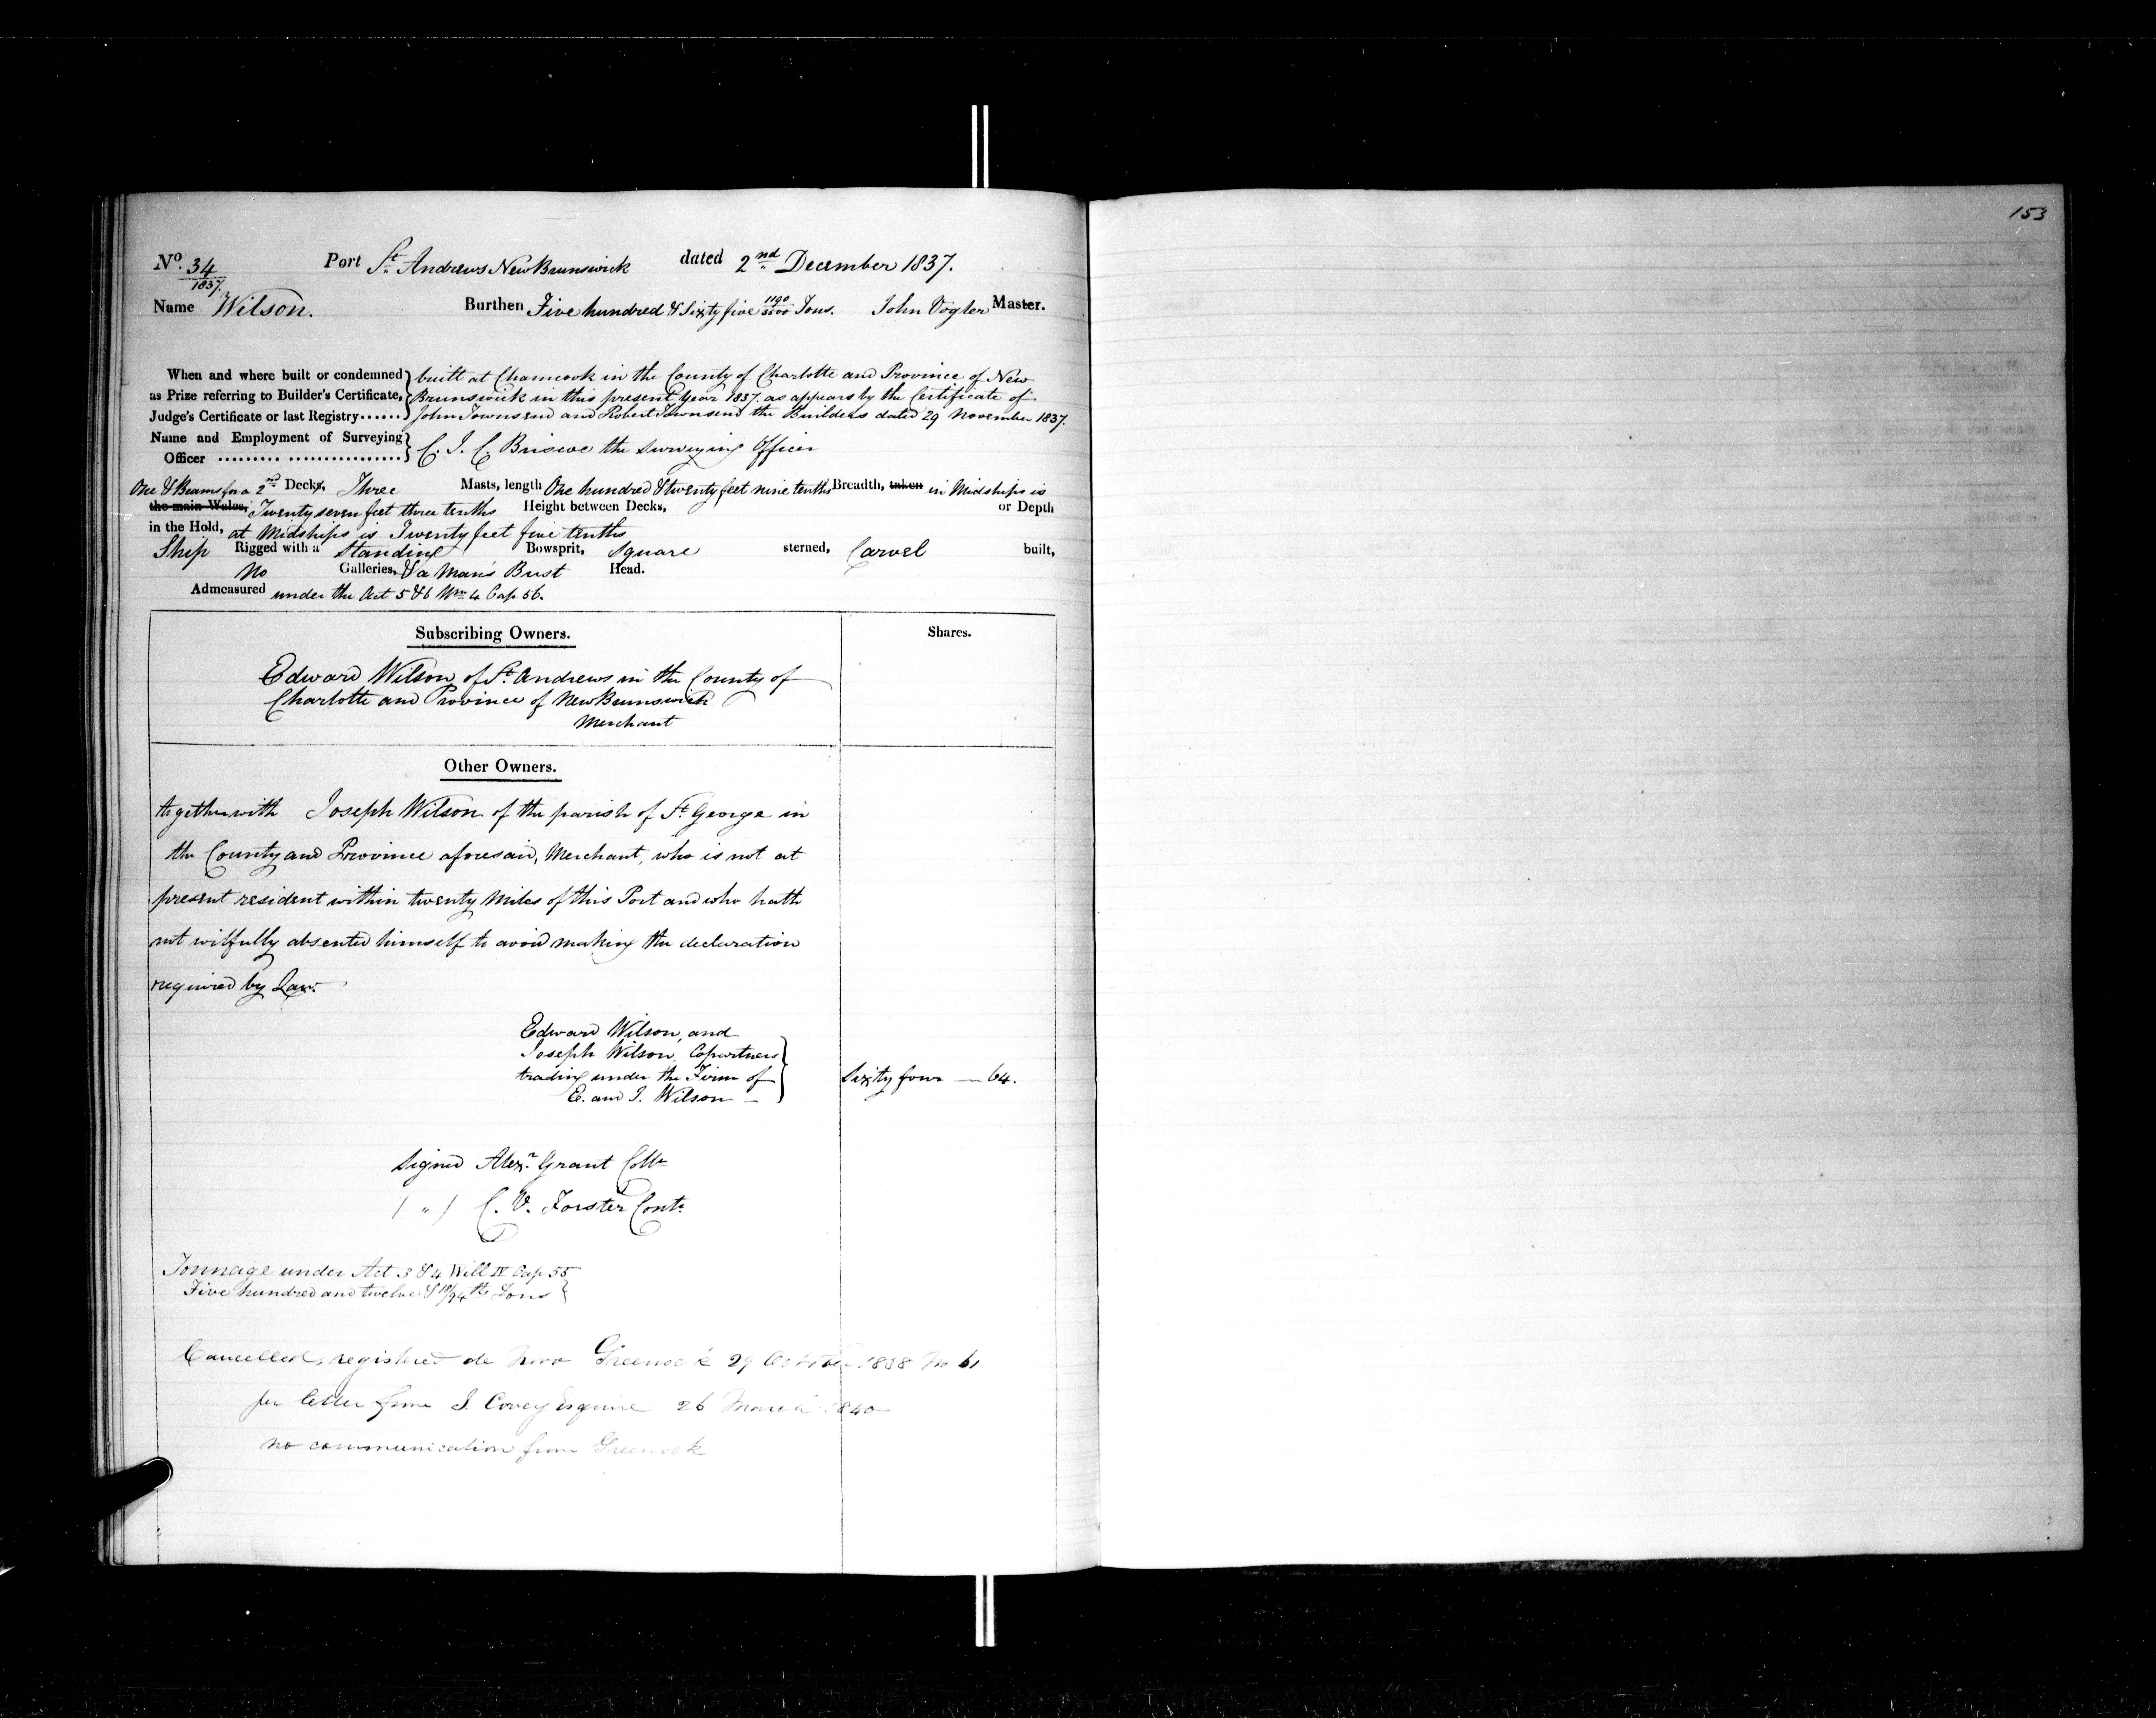 153
No. 34/1837. Port St. Andrews New Brunswick dated 2nd December 1837.
Name Wilson. Burthen Five hundred & Sixty five 1190/3500 Tons. John Vogler Master.
When and where built or condemned } built at Chamcook in the County of Charlotte and Province of New
as Prize referring to Builder's Certificate, } Brunswick in this present Year 1837. as appears by the Certificate of
Judge's Certificate or last Registry...... } John Townsend and Robert Townsend the Builders dated 29 November 1837.
Name and Employment of Surveying }
Officer ......... ................ } C. J. C. Briscoe the Surveying Officer
One & Beams for a 2nd Decks, Three Masts, length One hundred & twenty feet nine tenths Breadth, taken in Midships is
the main Wales, Twenty seven feet three tenths Height between Decks, or Depth
in the Hold, at Midships is Twenty feet five tenths
Ship Rigged with a Standing Bowsprit, Square sterned, Carvel built,
No Galleries, & a Man's Bust Head.
Admeasured under the Act 5 & 6 Wm 4 Cap 56.
Subscribing Owners. Shares.
Edward Wilson of St. Andrews in the County of
Charlotte and Province of New Brunswick
Merchant
Other Owners.
together with Joseph Wilson of the parish of St. George in
the County and Province aforesaid, Merchant, who is not at
present resident within twenty Miles of this Port and who hath
not wilfully absented himself to avoid making the declaration
required by Law.
Edward Wilson, and
Joseph Wilson, Copartners
trading under the Firm of Sixty four — 64.
E. and J. Wilson —
Signed Alexr. Grant Collr
( " ) C. V. Forster Contr.
Tonnage under Act 3 & 4 Will IV Cap 55
Five hundred and twelve & /94ths Tons
Cancelled, registered de Novo Greenock 29 October 1838 No 61
per letter from J. Covey Esquire 26 March 1840
no communication from Greenock